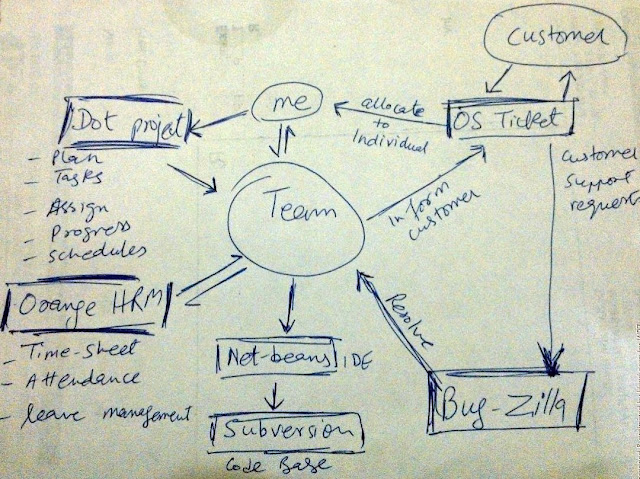 Customer
me
allocate
to
Individual
OS Ticket
Dot project
- Plan
- Tasks
- Assign
- Progress
- Schedules
Customer
support
request
Team
Inform
customer
Orange HRM
- Time-sheet
- Attendance
- leave management
Resolve
Net-beans IDE
Subversion
Code Base
Bug-Zilla